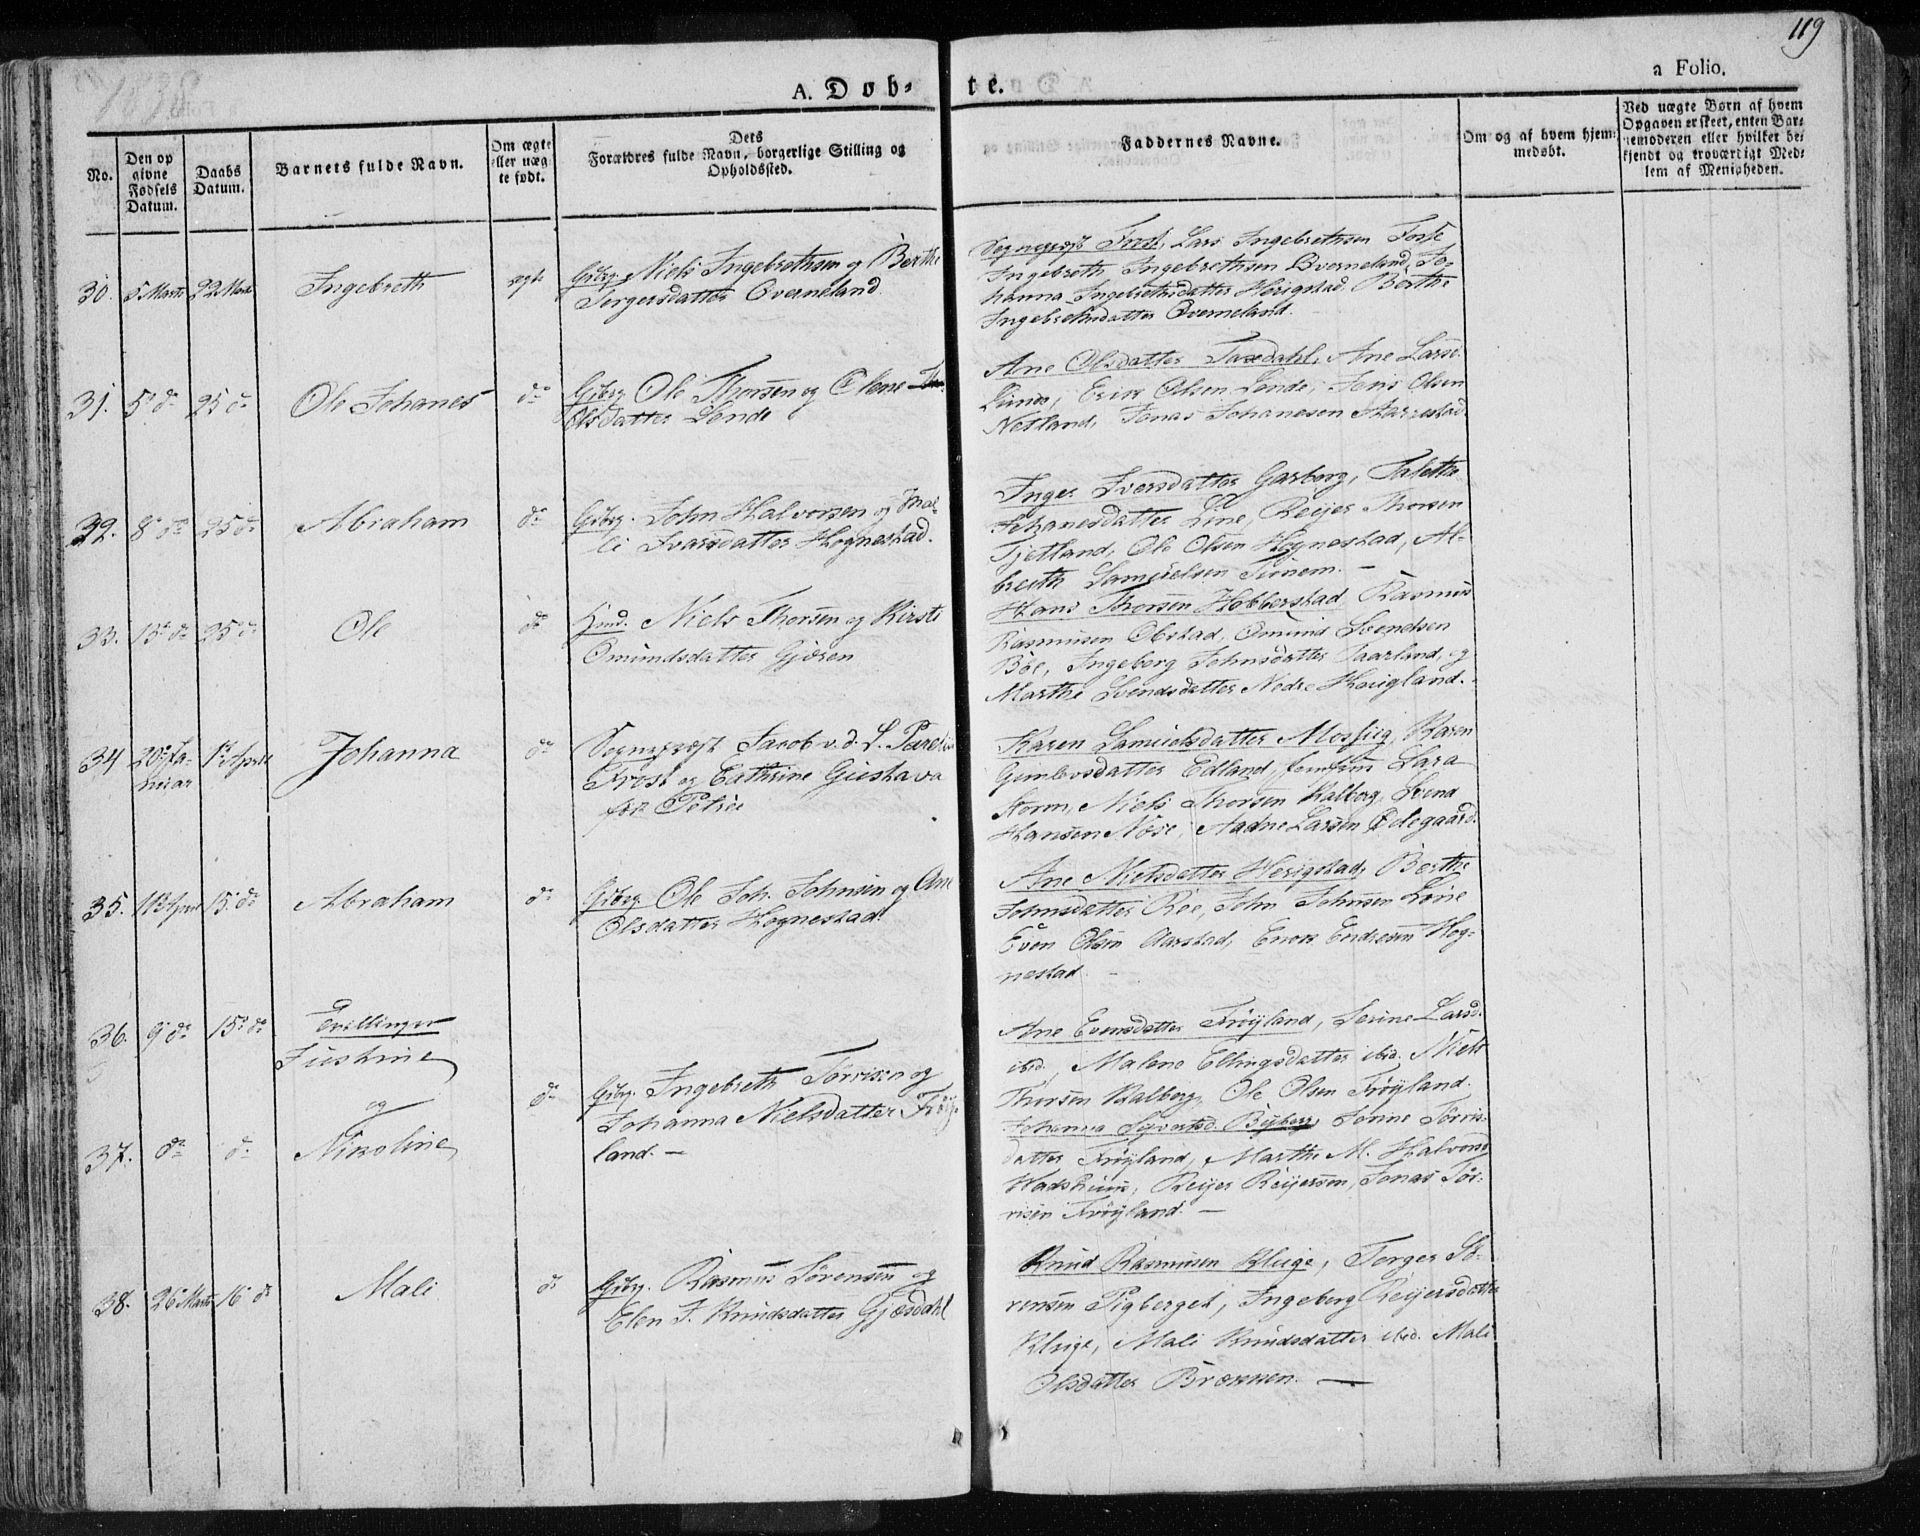 119
1838
A. Døb-
te.
a Folio.
No.
Den op
givne
Fødsels
Datum.
Daabs
Datum.
Barnets fulde Navn.
Om ægte
eller uæg-
te født.
Dets
Forældres fulde Navn, borgerlige Stilling og
Opholdssted.
Faddernes Navne.
Om og af hvem hjem-
medøbt.
Ved uægte Børn af hvem
Opgaven er skeet, enten Bar-
nemoderen eller hvilket be-
kjendt og troværdigt Med-
lem af Menigheden.
30. 5 Marts 22 Marts Ingebreth ægte Gjbrg. Niels Ingebrethsen og Berthe
Torgersdatter Qverneland
Sognepræst Frost, Lars Ingebrethsen Fosse
Ingebreth Ingebrethsen Qverneland, Jo-
hanna Ingebrethsdatter Herigstad, Berthe
Ingebrethsdatter Qverneland.
31. 5 do 25 do Ole Johanes do Gjbrg. Ole Thorsen og Olene
Olsdatter Lende
Ane Olsdatter Taxedahl, Ane Larsd.
Erik Olsen Lende, Jens Olsen
Netland, Jonas Johanesen Aarrestad
32. 8 do 25 do Abraham do Gjbrg. John Halvorsen og Ma-
li Ivarsdatter Hognestad.
Inger Iversdatter Garborg, Talette
Johanesdatter Line, Reijer Thorsen
Tjetland, Ole Olsen Hognestad, Al-
breth Samuelsen Tunem. —
33. 13 do 25 do Ole do Huusd. Niels Thorsen og Kirsti
Omundsdatter Gjøren
Hans Thorsen Hobberstad Rasmus
Rasmusen Obstad, Omund Svendsen
Böe, Ingeborg Johnsdatter Taarland, og
Marthe Svendsdatter Nedre Haugland.
34 20 Ja-
nuar 1 April Johanna do Sognepræst Jacob v. d. L. Parelius
Frost og Cathrine Gustava
Petrea
Karen Samuelsdatter Mossiig, Karen
Gunlevsdatter Edland, Jomfru Lara
Storm, Niels Thorsen Kalberg, Svend
Hansen Nöse, Aadne Larsen Ödegaard.
35. 11 April 15 do Abraham do Gjbrg. Ole Joh. Johnsen og Ane
Olsdatter Hognestad.
Ane Nielsdatter Herigstad, Berthe
Johnsdatter Röe, John Johnsen Line
Even Olsen Aarstad, Enok Endresen Hog-
nestad
36. 9 do 15 do Tvillinger
Justine
og
37. do do Nikoline
do Gjbrg. Ingebreth Törrisen og
Johanna Nielsdatter Fröy-
land. —
Ane Evensdatter Fröyland, Serine Larsd.
ibid, Malene Ellingsdatter ibid. Niels
Thorsen Kalberg, Ole Olsen Fröyland.
Johanna Syvertsd. Byberg, Jonne Törris-
datter Fröyland, Marthe M. Halvorsd
Hadskum, Reijer Reijersen, Jonas Tör-
risen Fröyland. —
38. 26 Marts 16 do Mali do Gjbrg. Rasmus Sörensen og
Elen J. Knudsdatter Gjesdahl
Knud Rasmusen Kluge, Torger Sö-
rensen Pigberget, Ingeborg Reijersdatter
Kluge, Mali Knudsdatter ibid. Mali
Olsdatter Brekken. —